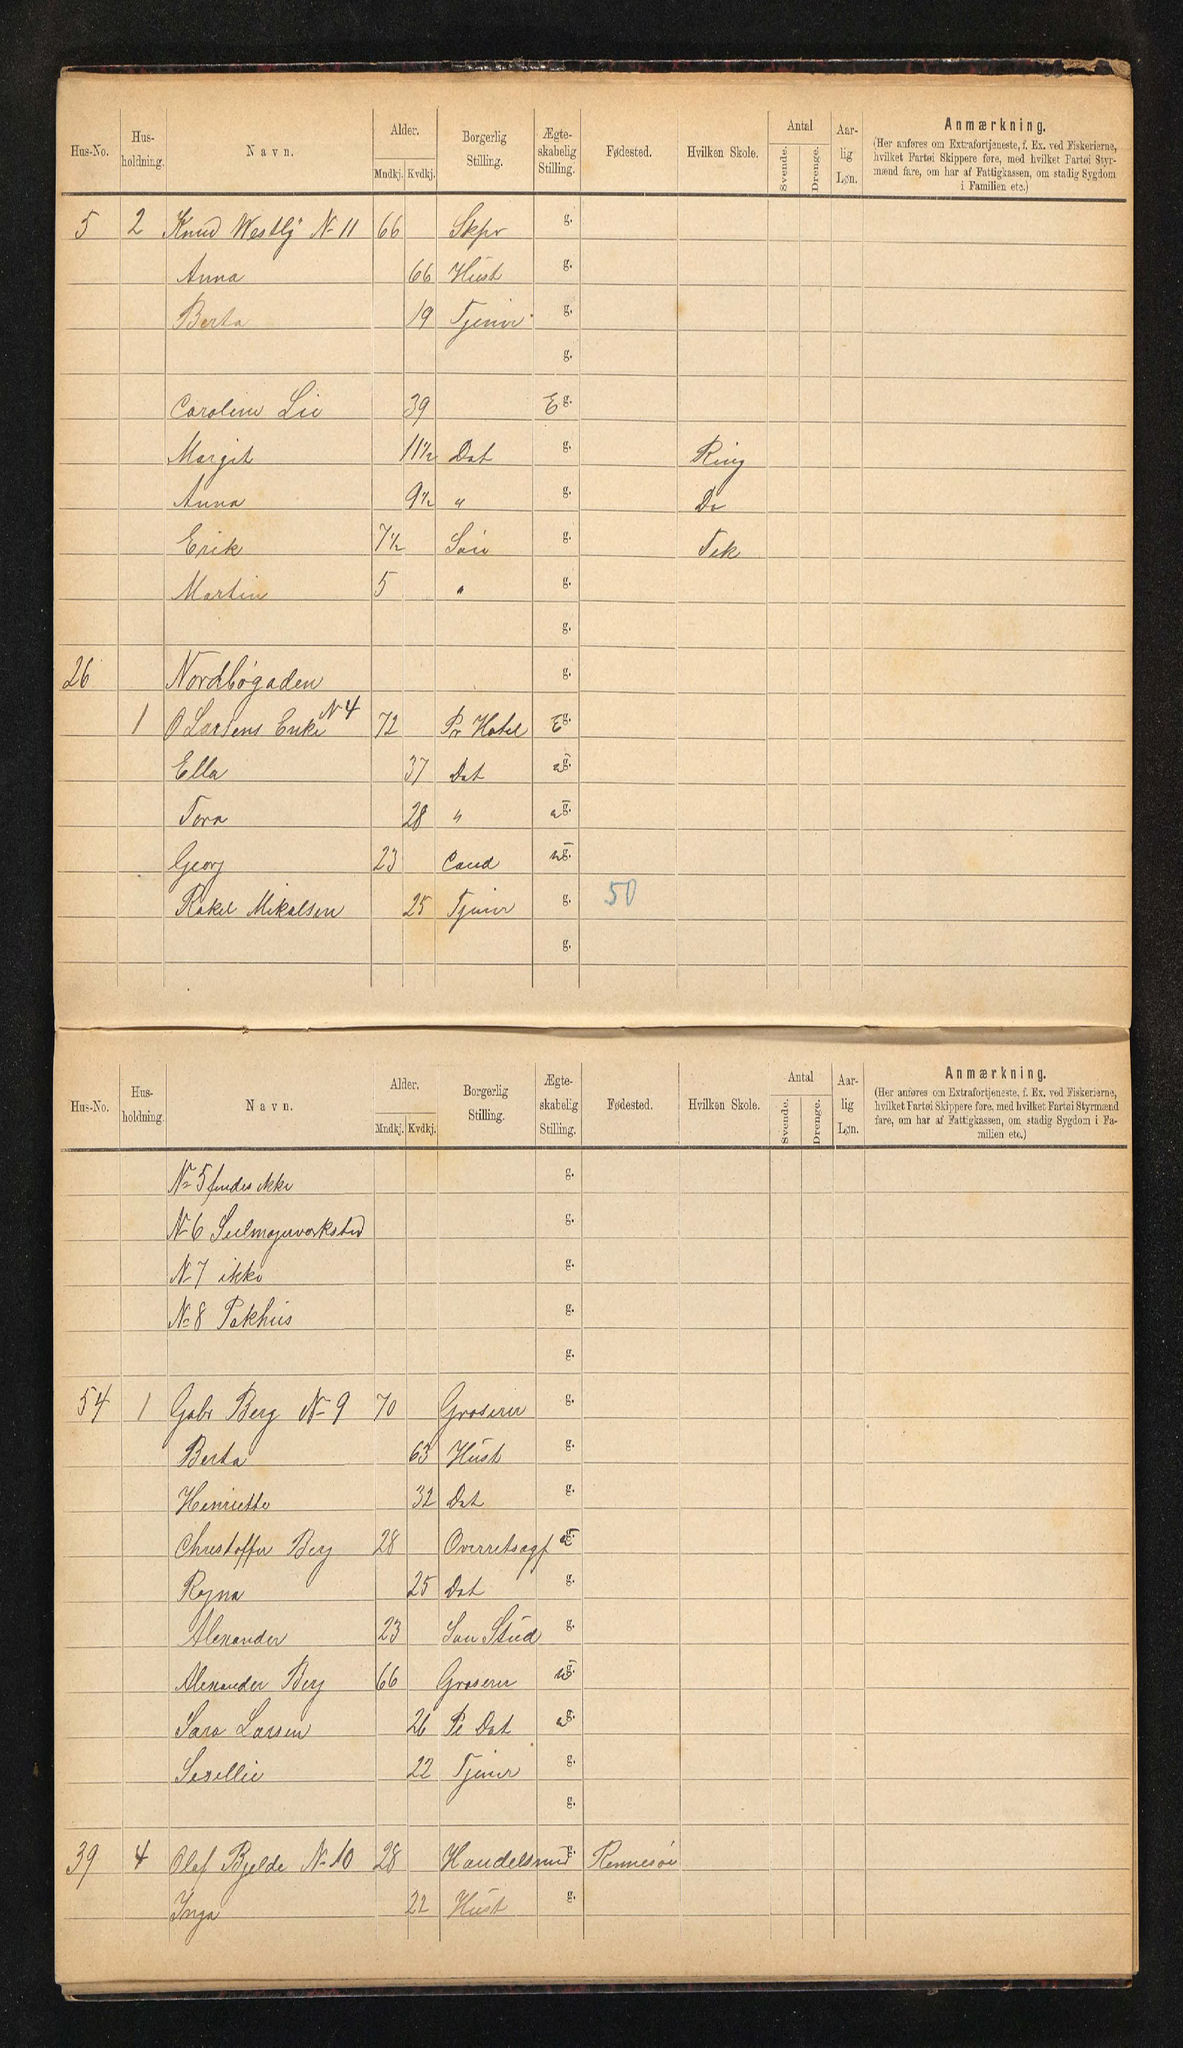 Hus-No. Hus-holdning. Navn. Alder. Mndkj. Kvdkj. Borgerlig Stilling. Ægte-skabelig Stilling. Fødested. Hvilken Skole. Antal Svende. Drenge. Aar-lig Løn. Anmærkning.
(Her anføres om Extrafortjeneste, f. Ex. ved Fiskerierne,
hvilket Partøi Skippere føre, med hvilket Partøi Styr-
mænd fare, om har af Fattigkassen, om stadig Sygdom
i Familien etc.)
5 2 Knud Westly N- 11 66 Skpr g.
Anna 66 Hust g.
Berta 19 Tjener g.
g.
Caroline Lie 39 E g.
Margit 11½ Dat g. Ring
Anna 9½ " g. Do
Erik 7½ Søn g. Tek
Martin 5 " g.
g.
26 Nordbøgaden g.
1 O Larsens Enke N 4 72 Pr Hotel E g.
Ella 37 Dat ug.
Tora 28 " ug.
Georg 23 Cand ug.
Rakel Mikalsen 25 Tjener g. 50
g.
Hus-No. Hus-holdning. Navn. Alder. Mndkj. Kvdkj. Borgerlig Stilling. Ægte-skabelig Stilling. Fødested. Hvilken Skole. Antal Svende. Drenge. Aar-lig Løn. Anmærkning.
(Her anføres om Extrafortjeneste, f. Ex. ved Fiskerierne,
hvilket Fartøi Skippere føre, med hvilket Fartøi Styrmænd
fare, om har af Fattigkassen, om stadig Sygdom i Fa-
milien etc.)
N- 5 findes ikke g.
N- 6 Seilmagerverksted g.
N- 7 ikke g.
N- 8 Pakhus g.
g.
54 1 Gabr Berg N- 9 70 Groserer g.
Berta 63 Hust g.
Henriette 32 Dat g.
Christoffer Berg 28 Overretsagf ug.
Ragna 25 Dat g.
Alexander 23 Søn Stud g.
Alexander Berg 66 Groserer ug.
Sara Larsen 26 Pl Dat ug.
Sesellie 22 Tjener g.
g.
39 4 Olaf Bjelde N- 10 28 Handelsmd g. Rennesøe
Inga 22 Hust g.